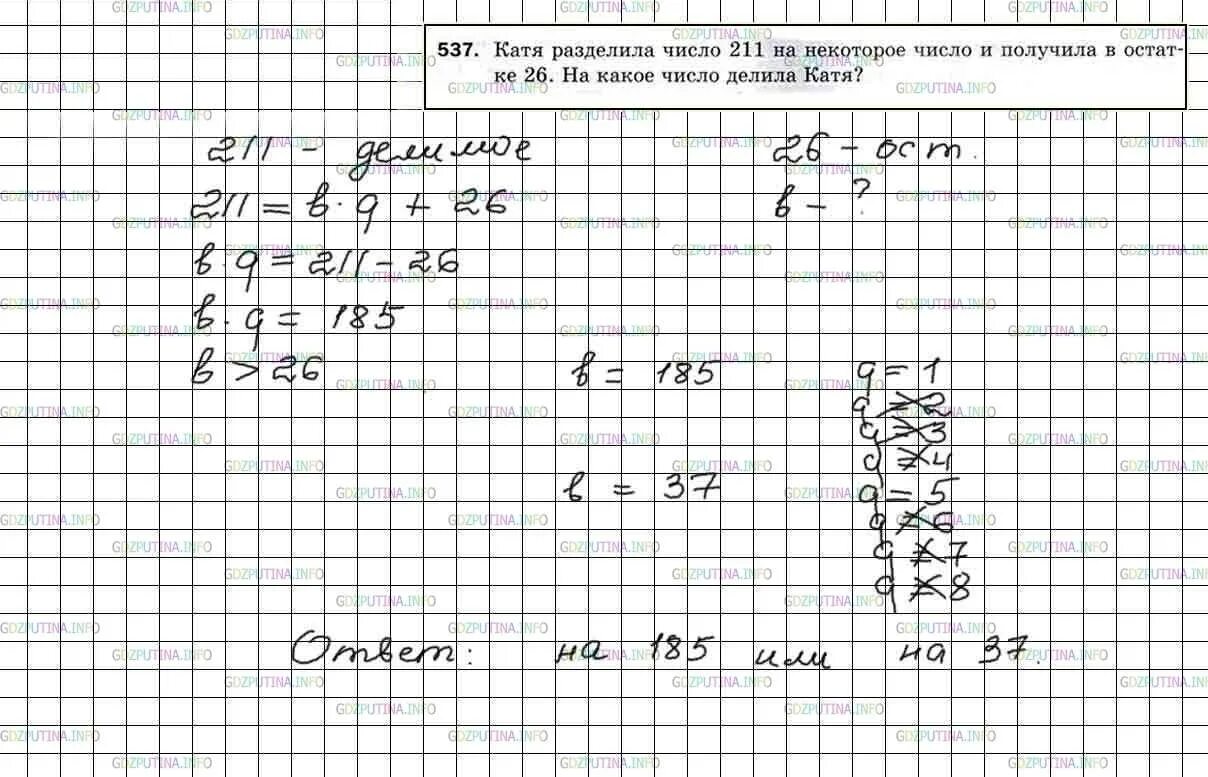 537. Катя разделила число 211 на некоторое число и получила в остат-
ке 26. На какое число делила Катя?
211 - делимое
26 - ост.
211 = в · q + 26
в - ?
в · q = 211 - 26
в · q = 185
в > 26
в = 185
q = 1
q = 2
q = 3
q = 4
в = 37
q = 5
q = 6
q = 7
q = 8
Ответ: на 185 или на 37.
GDZPUTINA.INFO